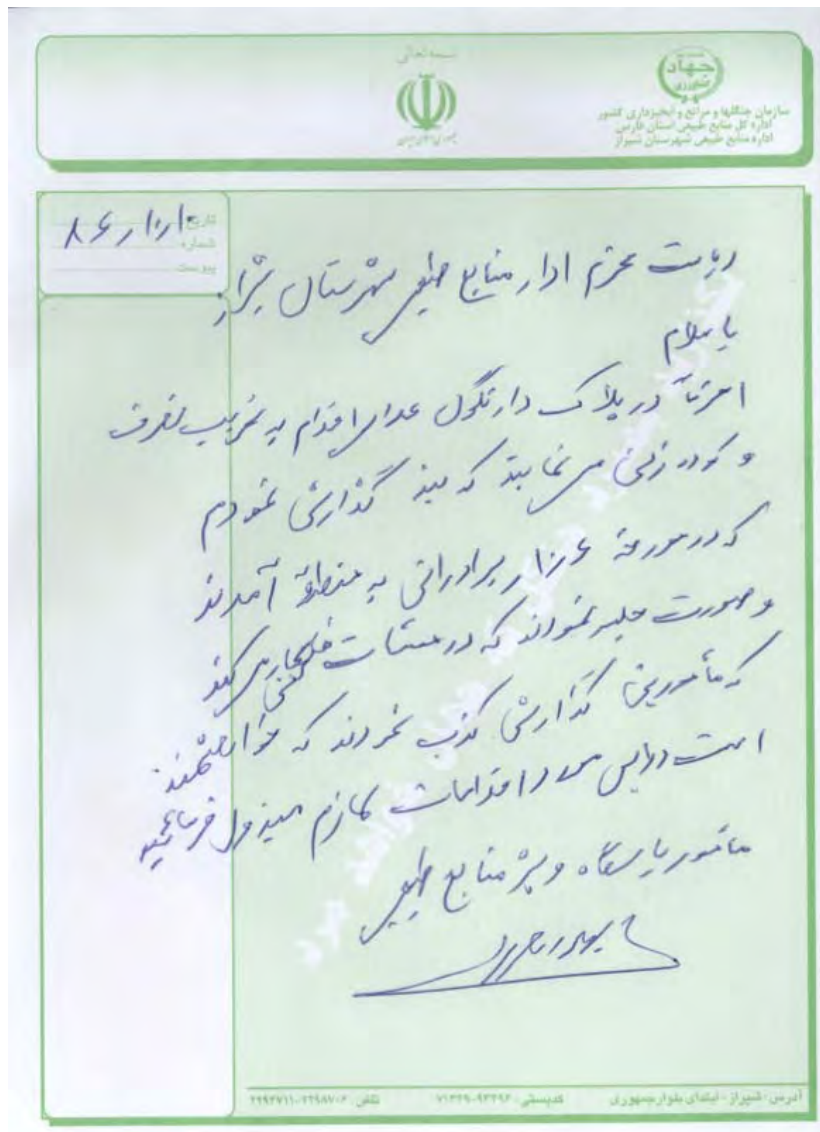 بسمه تعالی
جمهوری اسلامی ایران
جهاد کشاورزی
سازمان جنگلها و مراتع و آبخیزداری کشور
اداره کل منابع طبیعی استان فارس
اداره منابع طبیعی شهرستان شیراز
تاریخ ۸۶/۱۰/۱۰
شماره
پیوست
ریاست محترم اداره منابع طبیعی شهرستان شیراز
با سلام
احتراماً در پلاک دارنگون عده‌ای اقدام به تخریب تصرف
و کود زنی می نمایند که بنده گزارش نمودم
که در مورخه برادرانی به منطقه آمدند
و صورت جلسه نمودند که در مستثنیات
که مأمورین گزارش کذب نمودند که خواهشمند
است در این مورد اقدامات لازم مبذول فرمائید
مأمور پاسگاه ویژه منابع طبیعی
آدرس: شیراز - ابتدای بلوار جمهوری
کدپستی: ۷۱۴۳۹-۹۴۴۹۶
تلفن: ۲۲۹۸۷۰۶-۲۲۹۴۷۱۱